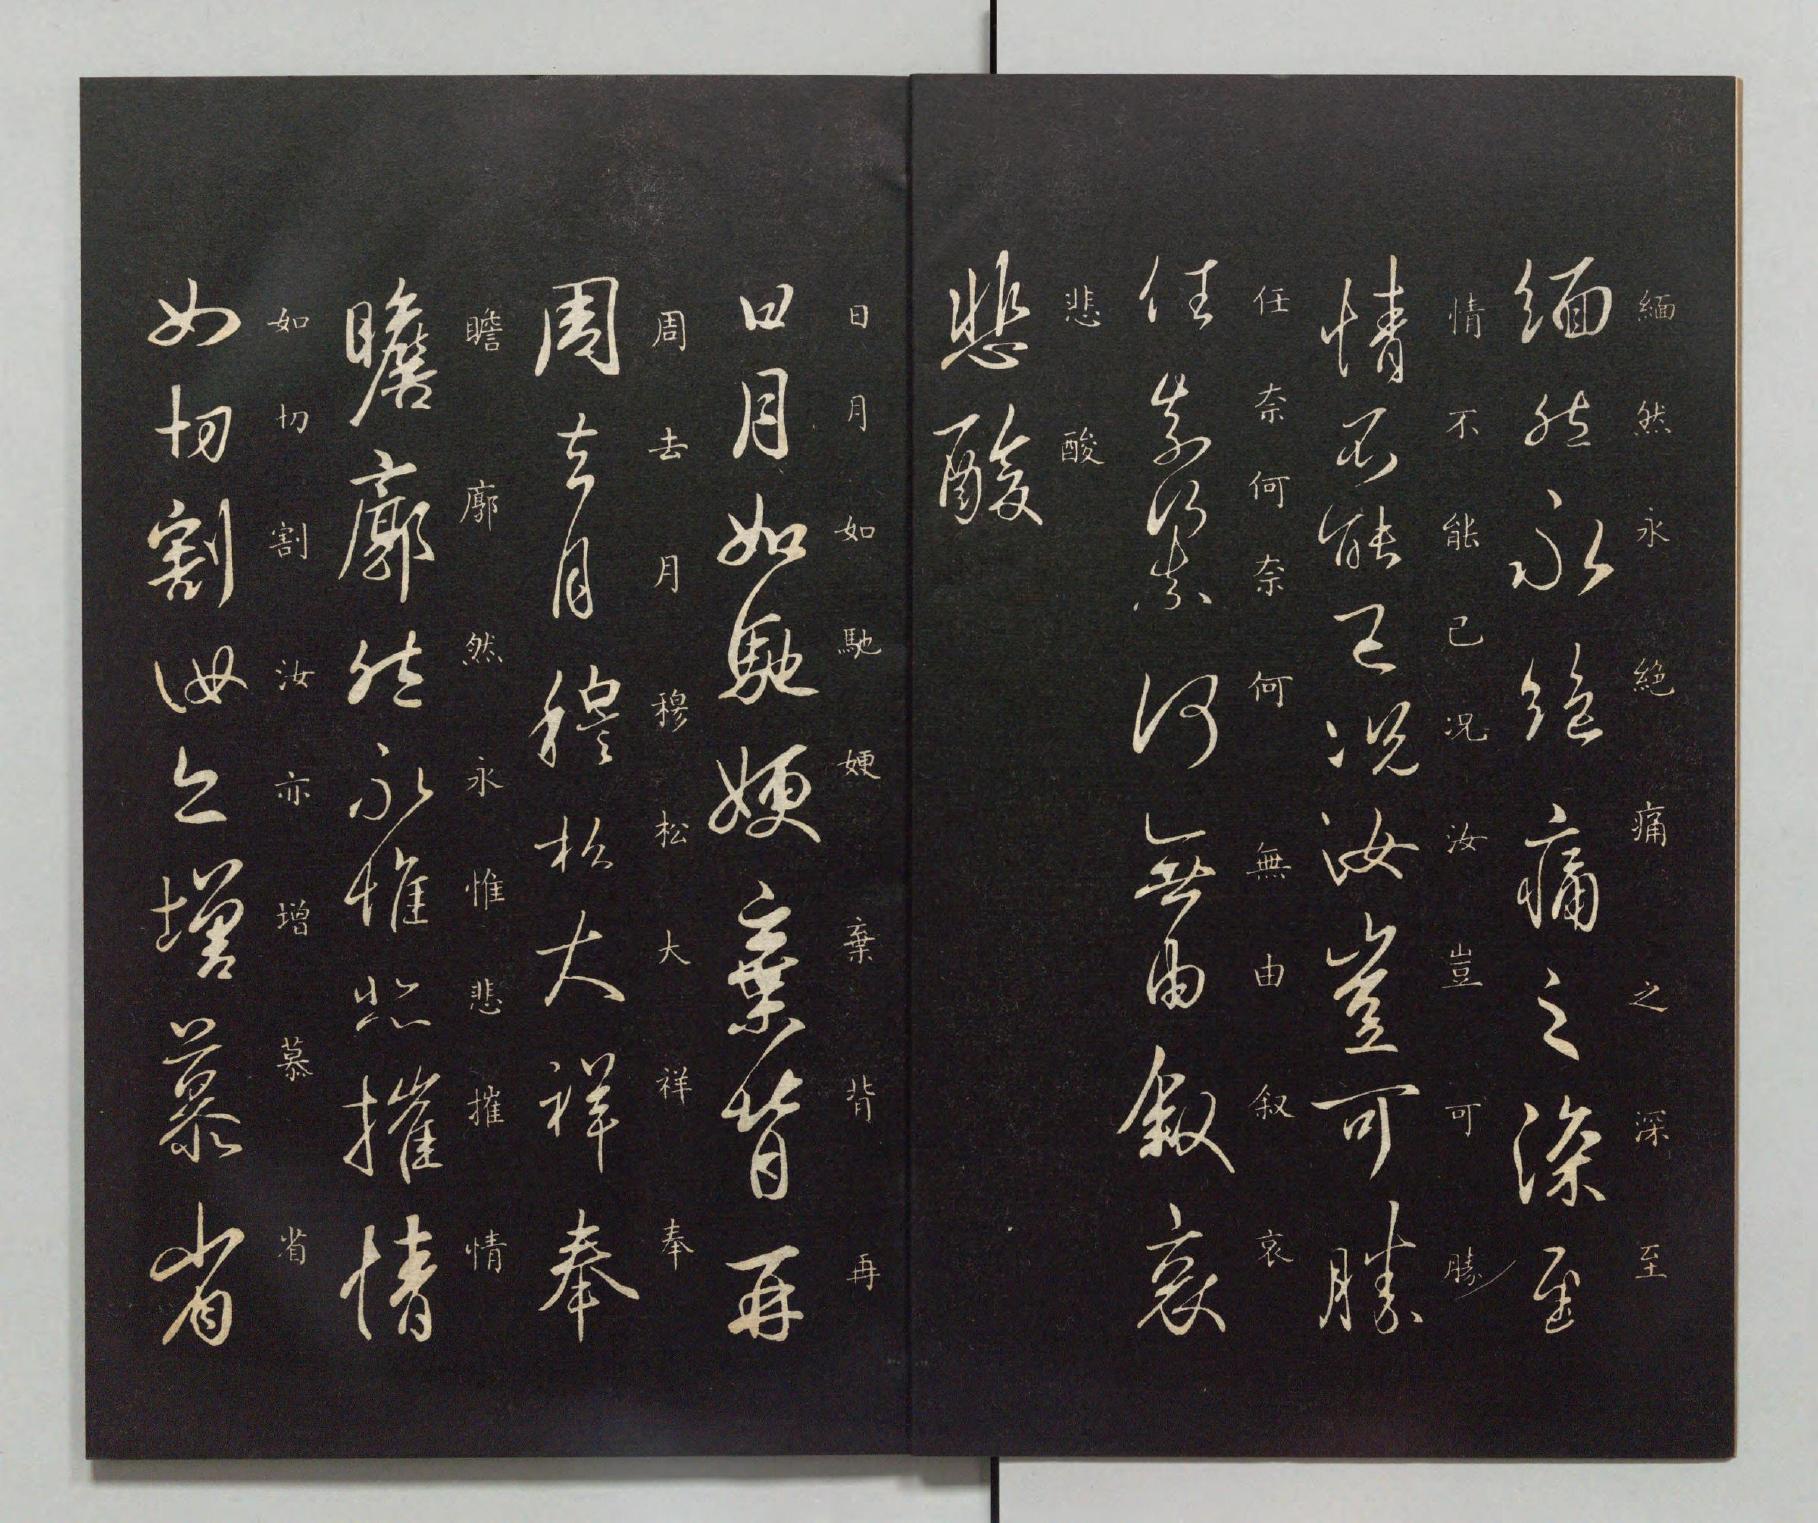 緬然永絶痛之深至
緬然永絶痛之深至
情不能已况汝豈可勝
情不能已况汝豈可勝
任奈何奈何無由叙哀
任奈何奈何無由叙哀
悲酸
悲酸
日月如馳㛐棄背再
日月如馳㛐棄背再
周去月穆松大祥奉
周去月穆松大祥奉
瞻廓然永惟悲摧情
瞻廓然永惟悲摧情
如切割汝亦增慕省
如切割汝亦增慕省